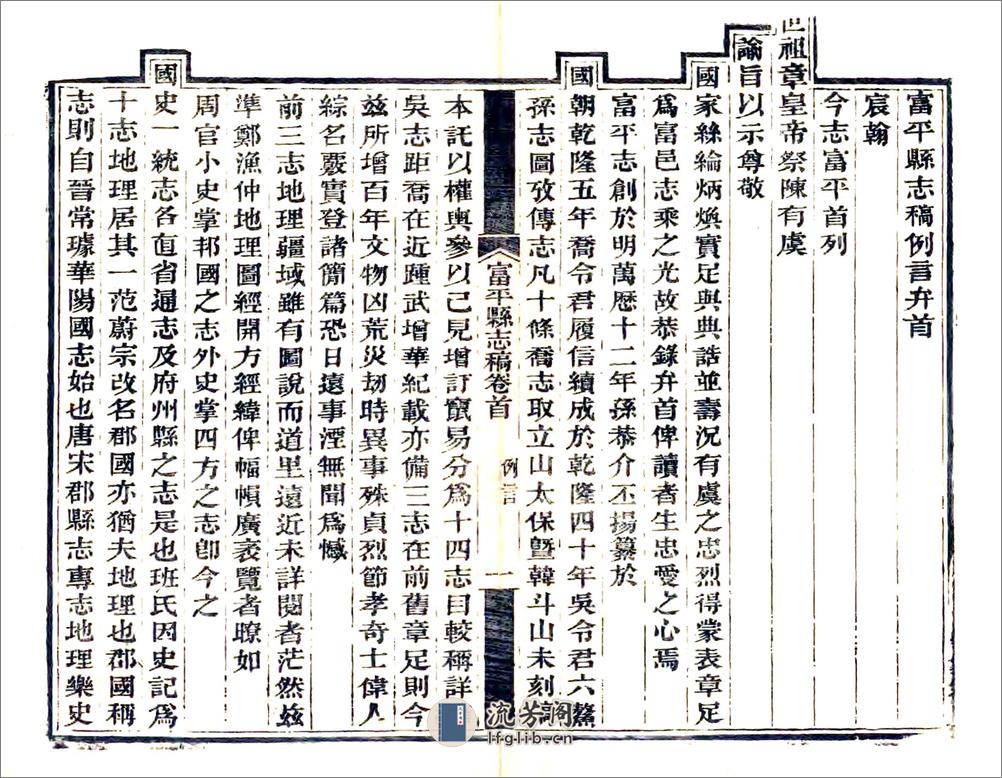 富平縣志稿例言弁首
宸翰
今志富平首列
世祖章皇帝祭陳有虞
諭旨以示尊敬
國家絲綸炳煥實足與典誥並壽況有虞之忠烈得蒙表章足
爲富邑志乘之光故恭錄弁首俾讀者生忠愛之心焉
富平志創於明萬歷十二年孫恭介丕揚纂於
國朝乾隆五年喬令君履信續成於乾隆四十年吳令君六鰲
孫志圖攷傳志凡十條喬志取立山太保暨韓斗山未刻
本託以權輿參以己見增訂竄易分爲十四志目較稱詳
吳志距喬在近踵武增華紀載亦備三志在前舊章足則今
玆所增百年文物凶荒災刼時異事殊貞烈節孝奇士偉人
綜名覈實登諸簡篇恐日遠事湮無聞爲憾
前三志地理疆域雖有圖說而道里遠近未詳閱者茫然玆
準鄭漁仲地理圖經開方經緯俾幅幀廣袤覽者瞭如
周官小史掌邦國之志外史掌四方之志卽今之
國史一統志各直省通志及府州縣之志是也班氏因史記爲
十志地理居其一范蔚宗改名郡國亦猶夫地理也郡國稱
志則自晉常璩華陽國志始也唐宋郡縣志專志地理樂史
富平縣志稿卷首
例言
一
流芳閣
lfglib.cn